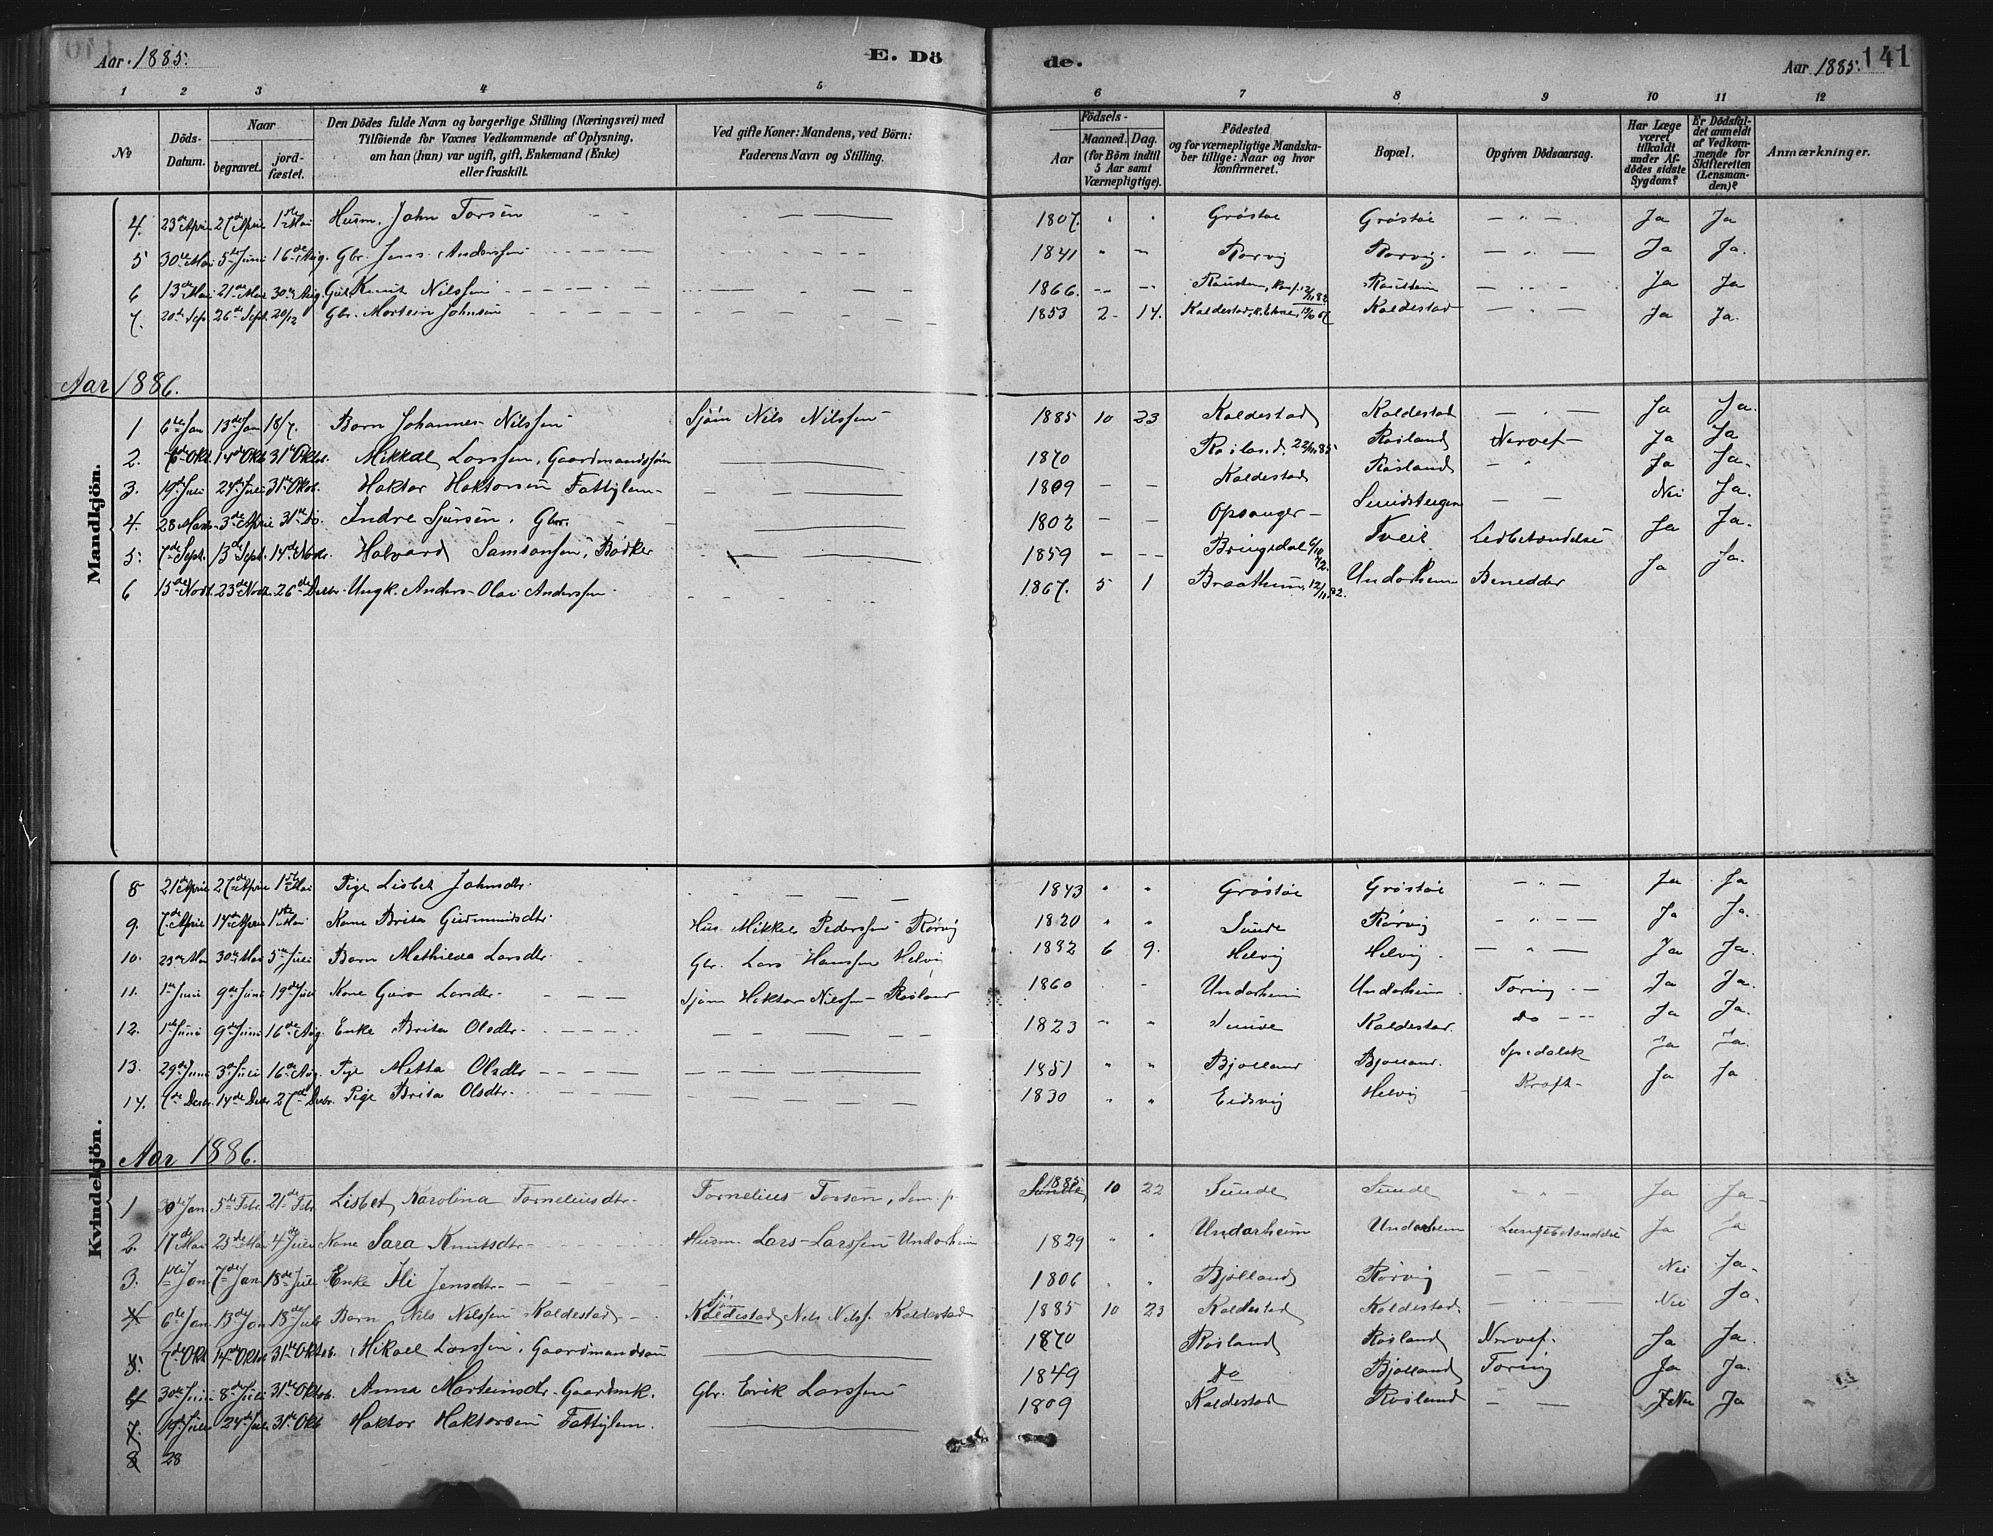 Aar 1885. E. Dö de. Aar 1885. 141
1 2 3 4 5 6 7 8 9 10 11 12
No
Döds-Datum.
Naar
begravet.
jord-fæstet.
Den Dödes fulde Navn og borgerlige Stilling (Næringsvei) med
Tilföiende for Voxnes Vedkommende af Oplysning,
om han (hun) var ugift, gift, Enkemand (Enke)
eller fraskilt.
Ved gifte Koner: Mandens, ved Börn:
Faderens Navn og Stilling.
Födsels-
Aar
Maaned. Dag.
(for Börn indtil
5 Aar samt
Værnepligtige).
Födested
og for værnepligtige Mandska-
ber tillige: Naar og hvor
konfirmeret.
Bopæl.
Opgiven Dödsaarsag.
Har Læge
været
tilkaldt
under Af-
dödes sidste
Sygdom?
Er Dödsfal-
det anmeldt
af Vedkom-
mende for
Skifteretten
(Lensman-
den)?
Anmærkninger.
Mandkjön.
4. 23de April 27de April 1ste Mai Husm. John Torsen 1807. Gróstøe Gróstøe Ja Ja
5 30te Mai 5te Juni 16de Aug. Gbr. Jens Anderssen 1841 Rørvig Rørvig. Ja Ja.
6 13de Mai 21de Mai 30te Aug. Knut Nilssen 1866. Ja Ja
7. 20de Sep 26de Sept. 20/12 Gbr. Mortein Johnsen 1853 2 14. Kaldestad Kaldestad Ja Ja.
Aar 1886.
1 6te Jan 13de Jan 18/7. Barn Johannes Nilssen Sjøm Nils Nilssen 1885 10 23 Kaldestad Kaldestad Ja Ja.
2. 7de Okt. 14de Oktb 31te Oktob. Mikkal Larssen, Gaardmandssøn 1870 Røsland. 22/11 85 Røsland Nervef Ja Ja
3. 19de Juli 24de Juli 31te Oktb. Haktor Haktorsen Fattiglem 1809 Kaldestad Røsland Ja Ja.
4. 28 Marts 3de April 31te Do. Indre Sjursen, Gbr. 1802 Opsanger Nei Ja.
5. 7de Sept. 13de Sept. 14de Novbr. Halvard Samsonsen, Bødker 1859 Bringedal Tveit Ledbetændelse Ja Ja.
6 15de Novb. 23de Novb. 26de Decbr. Ungk. Anders Olai Anderssen 1867. 5 1 Undarheim Benedder Ja Ja.
Kvindekjön.
8 21de April 27de April 1ste Mai Pige Lisbet Johnsdtr. 1843 Gróstøe Gróstøe Ja Ja
9. 7de April 14de April 1ste Mai Kone Brita Gudmundsdtr. Hus. Mikkel Pederssen Rørvig 1820 Sunde Rørvig Ja Ja.
10. 23de Mai 30te Mai 5te Juli Barn Mathilda Larsdtr. Gbr. Lars Hanssen Helvig 1882 6 9. Helvig Helvig Ja Ja.
11. 1ste Juni 9de Juni 19de Juli Kone Guro Larsdtr. Sjøm Haktor Nilssen Røsland 1860 Undarheim Undarheim Tæring Ja Ja.
12. 1ste Juni 9de Juni 16de Aug. Enke Brita Olsdtr. 1823 Sunde Kaldestad. Do Ja Ja.
13. 29de Juni 3de Juli 16de Aug. Pige Metta Olsdtr 1851 Bjølland Bjølland. Spedalsk Ja Ja.
14. 9de Decbr. 14de Decbr 27de Decbr. Pige Brita Olsdtr. 1830 Eidsvig Helvig Kræft Ja Ja
Aar 1886.
1 30 Jan. 5te Febr. 21de Febr Lisbet Karolina Torneliusdtr. Tornelius Torsen, 1885 10 22 Sunde Sunde Ja Ja
2. 17de Mai 23de Mai 4de Juli Kone Sara Knutsdtr. Husm. Lars Larssen Undarheim 1829 Undarheim Undarheim Lungebetændelse Ja Ja
3. 1ste Jan 7de Jan. 18de Juli Enke Jensdtr. 1806 Bjølland Rørvig Nei Ja.
4 6te Jan. 13de Jan 18de Juli Barn Nils Nilssen Kaldestad Kaldestad, Nels Nilss. Kaldestad 1885 10 23 Kaldestad Kaldestad. Nei Ja.
5. 7de Okt 14de Oktbr 31te Oktob. Mikael Larssen, Gaardmandssøn 1870 Røsland Røsland Nervef. Ja Ja.
4 30te Juni 8de Juli 31te Oktob. Anna Morteinsdtr. Gaardmk. Gbr. Erik Larssen 1849 Do Bjølland Tæring Ja Ja.
7. 19de Juli 24de Juli 31te Okt Haktor Haktorsen Fattiglem. 1809 Kaldestad Røsland Nei Ja
8 28